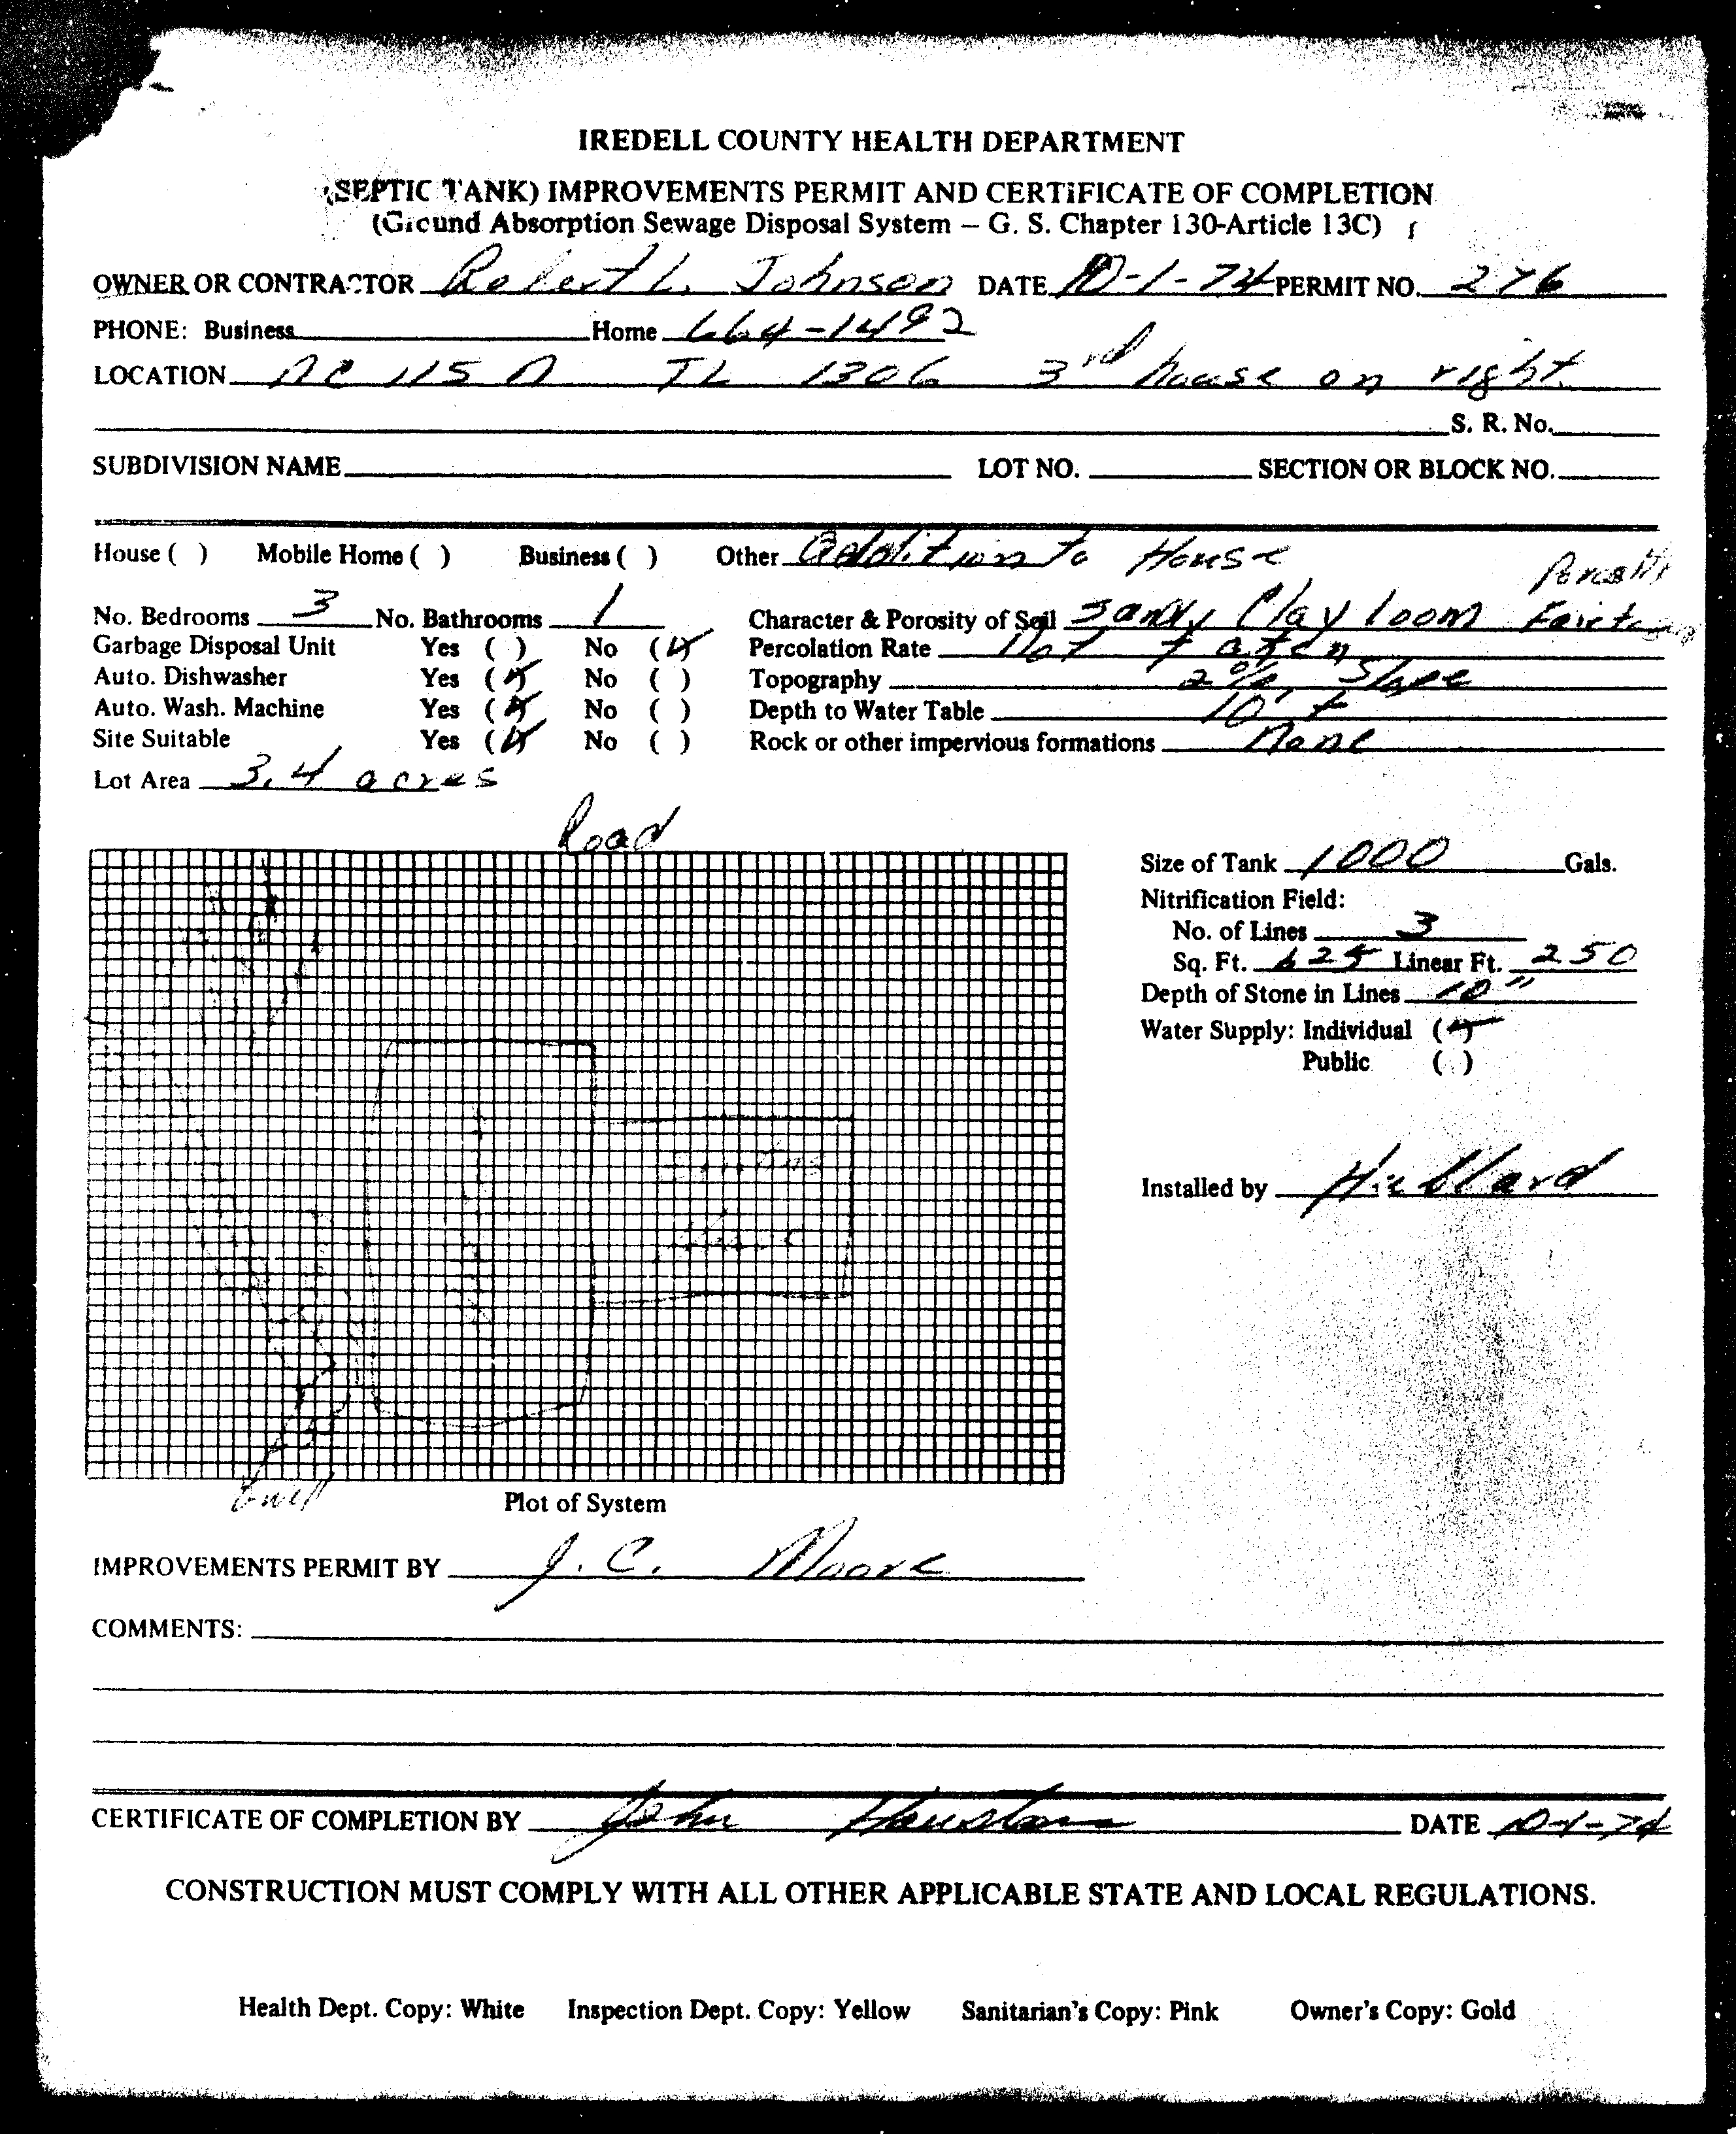 IREDELL COUNTY HEALTH DEPARTMENT
(SEPTIC TANK) IMPROVEMENTS PERMIT AND CERTIFICATE OF COMPLETION
(Ground Absorption Sewage Disposal System – G. S. Chapter 130-Article 13C)
OWNER OR CONTRACTOR Robert L. Johnson DATE 10-1-74 PERMIT NO. 276
PHONE: Business Home 664-1492
LOCATION NC 115 N TL 1306 3rd house on right
S. R. No.
SUBDIVISION NAME LOT NO. SECTION OR BLOCK NO.
House ( ) Mobile Home ( ) Business ( ) Other Addition to House
No. Bedrooms 3 No. Bathrooms 1 Character & Porosity of Soil Sandy Clay loom
Garbage Disposal Unit Yes ( ) No (✓) Percolation Rate Not taken
Auto. Dishwasher Yes (✓) No ( ) Topography 2% Slope
Auto. Wash. Machine Yes (✓) No ( ) Depth to Water Table 10' +
Site Suitable Yes (✓) No ( ) Rock or other impervious formations None
Lot Area 3.4 acres
Road
Size of Tank 1000 Gals.
Nitrification Field:
No. of Lines 3
Sq. Ft. 625 Linear Ft. 250
Depth of Stone in Lines 10"
Water Supply: Individual (✓)
Public ( )
Installed by Hubbard
Plot of System
IMPROVEMENTS PERMIT BY J. C. Moore
COMMENTS:
CERTIFICATE OF COMPLETION BY John Houston DATE 10-1-74
CONSTRUCTION MUST COMPLY WITH ALL OTHER APPLICABLE STATE AND LOCAL REGULATIONS.
Health Dept. Copy: White Inspection Dept. Copy: Yellow Sanitarian's Copy: Pink Owner's Copy: Gold